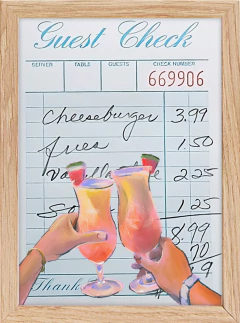 Guest Check
SERVER TABLE GUESTS CHECK NUMBER
669906
Cheeseburger 3.99
fries 1.50
2.25
1.25
8.99
70
9
Thank